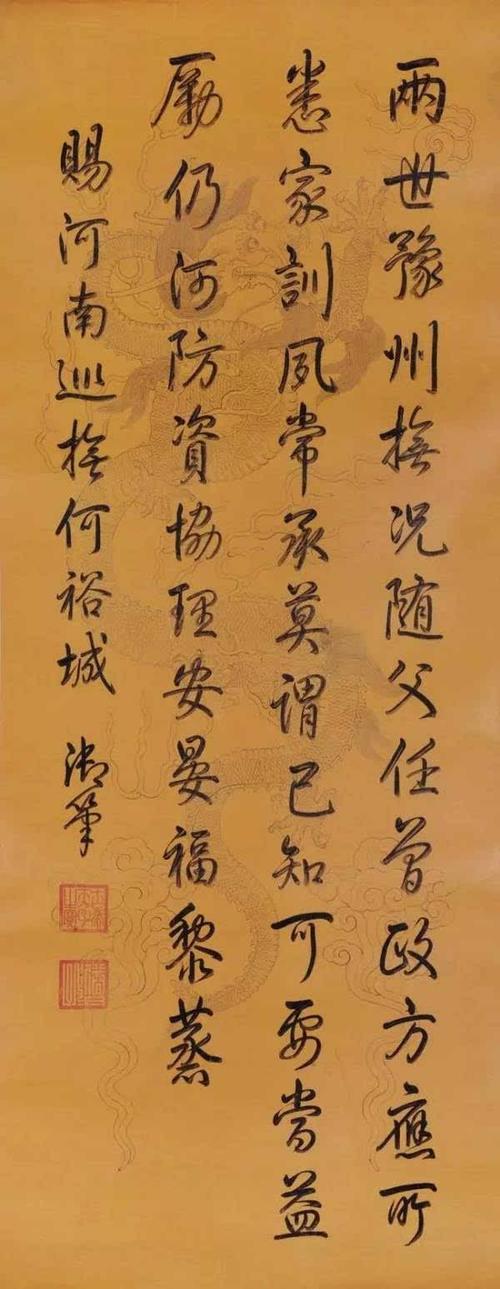 兩世豫州撫況随父任曾政方應所
悉家訓夙常承莫謂已知可要當益
勵仍河防資協理安晏福黎蒸
賜河南巡撫何裕城 御筆